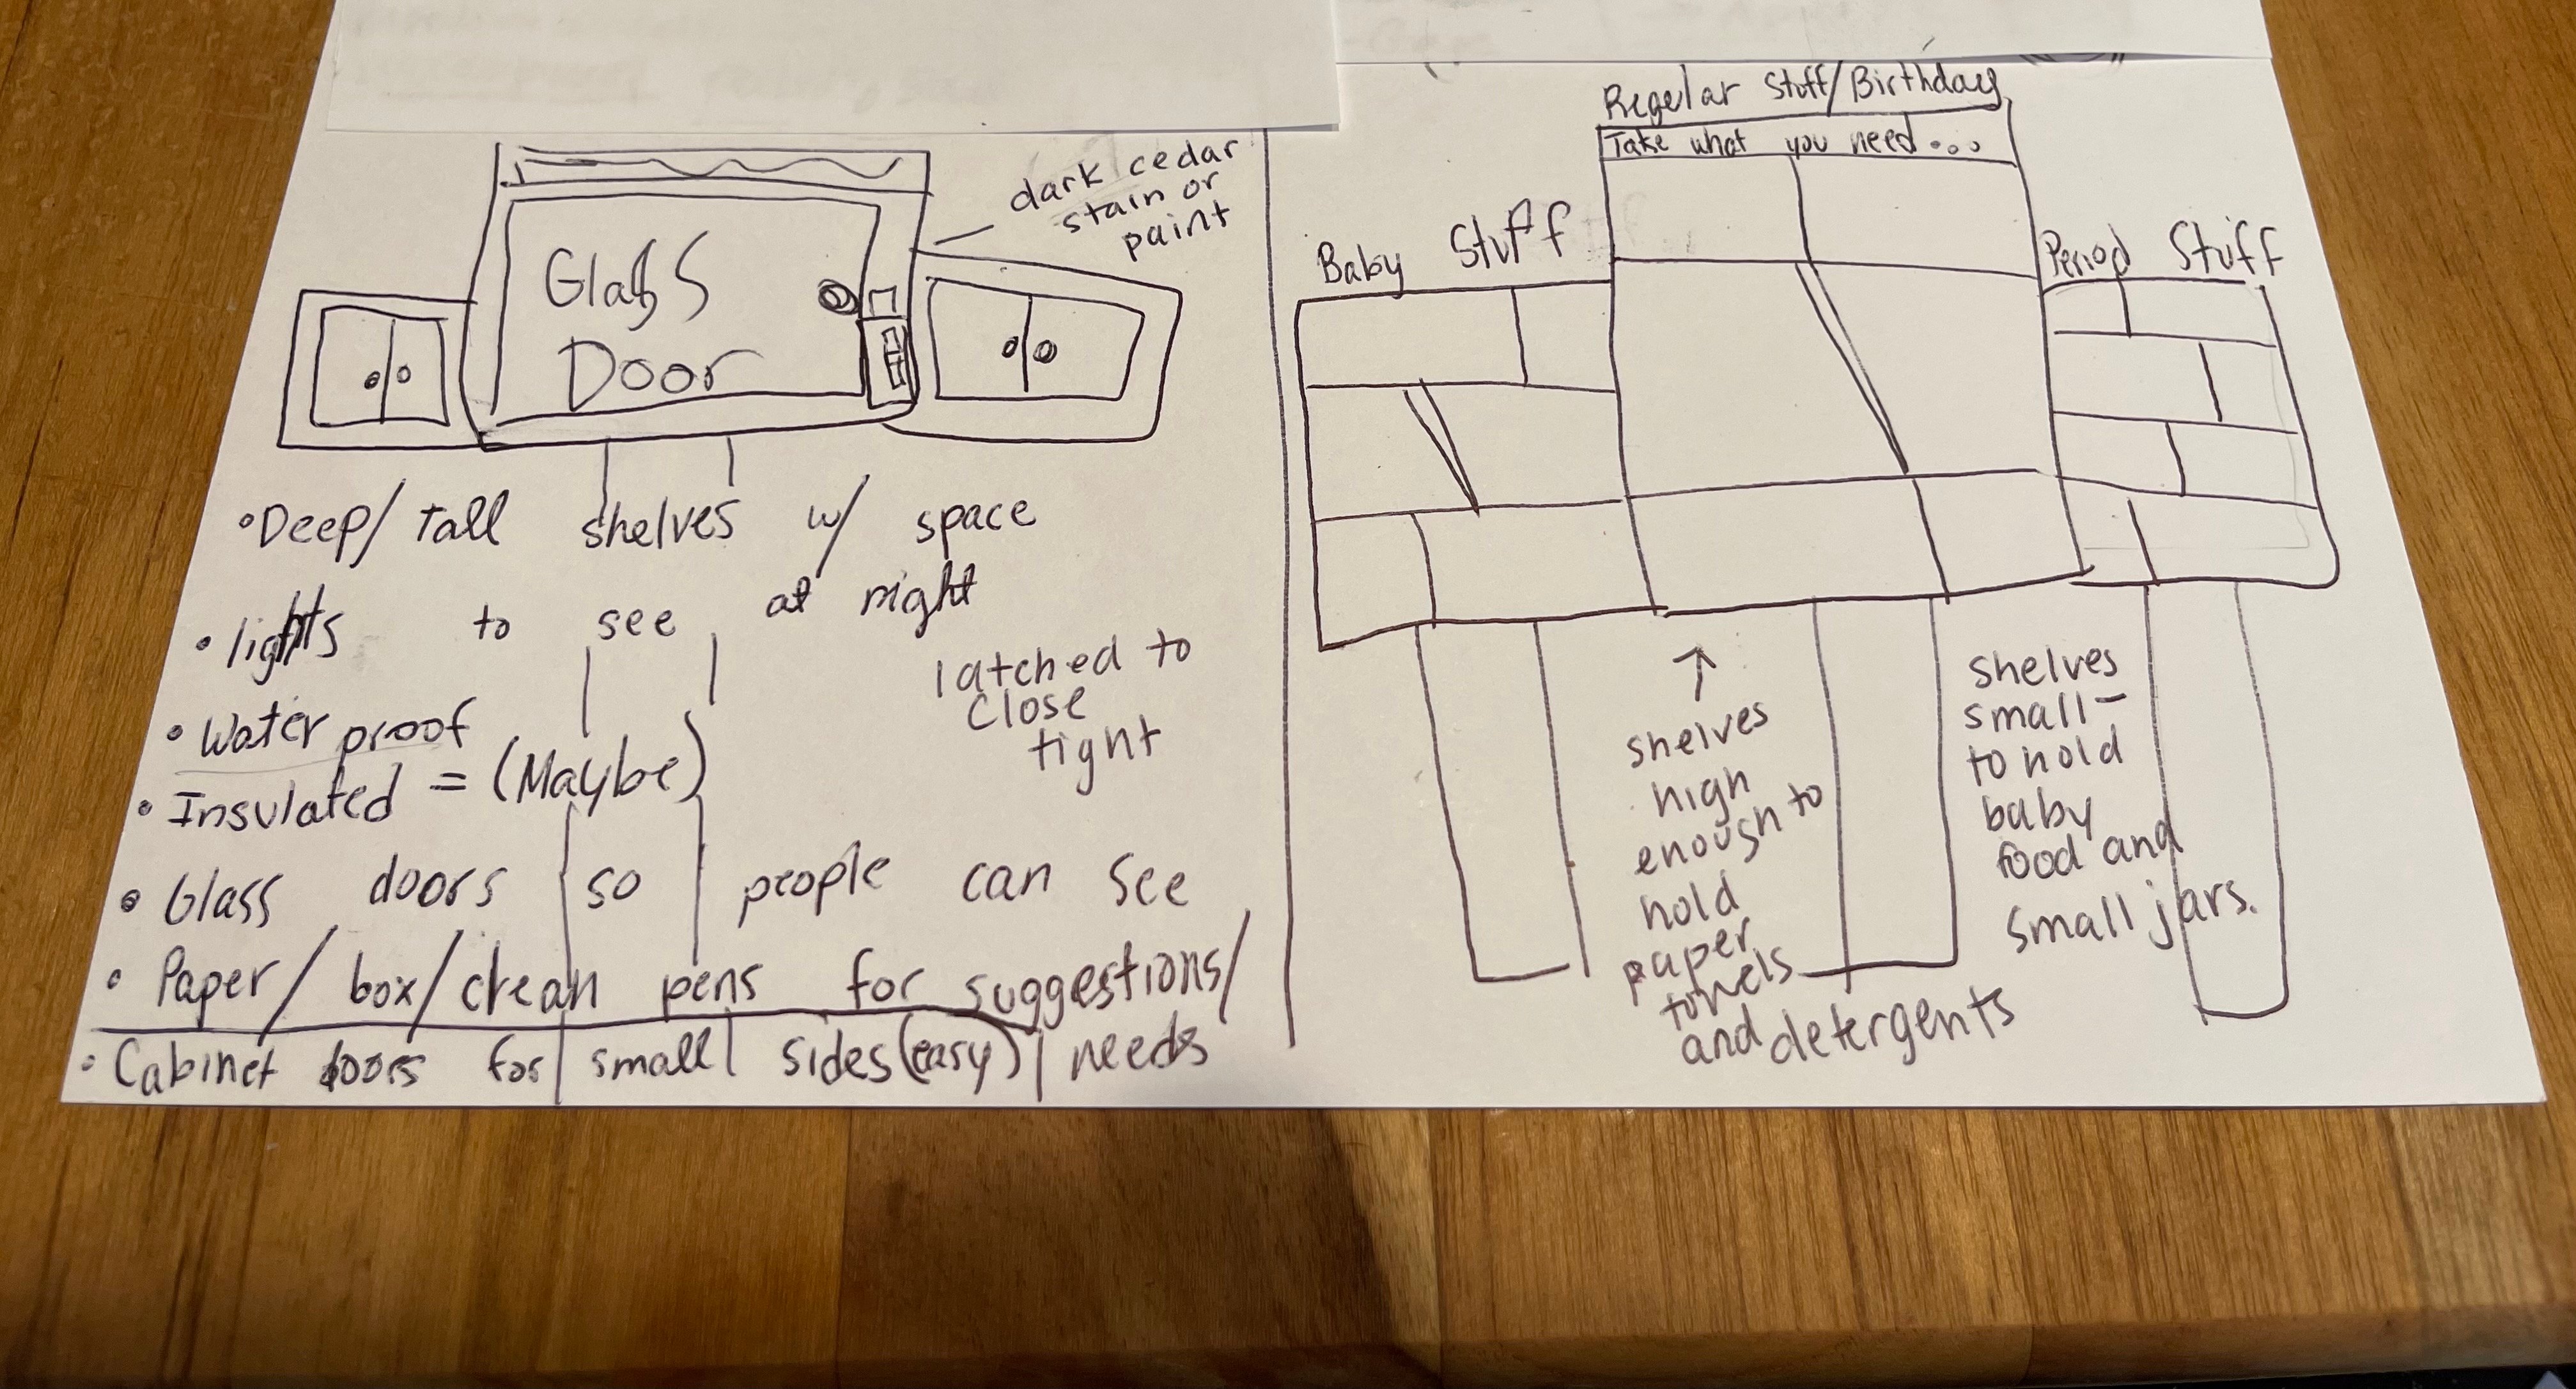 Glass
Door
dark cedar
stain or
paint
•Deep/Tall shelves w/ space
• lights to see at night
latched to
close
tight
• Waterproof
• Insulated = (Maybe)
• Glass doors so people can see
• Paper/box/clean pens for suggestions/
needs
• Cabinet doors for small sides (easy)
Regular Stuff/Birthday
Take what you need...
Baby Stuff
Period Stuff
shelves
high
enough to
hold
paper
towels
and detergents
shelves
small-
to hold
baby
food and
small jars.